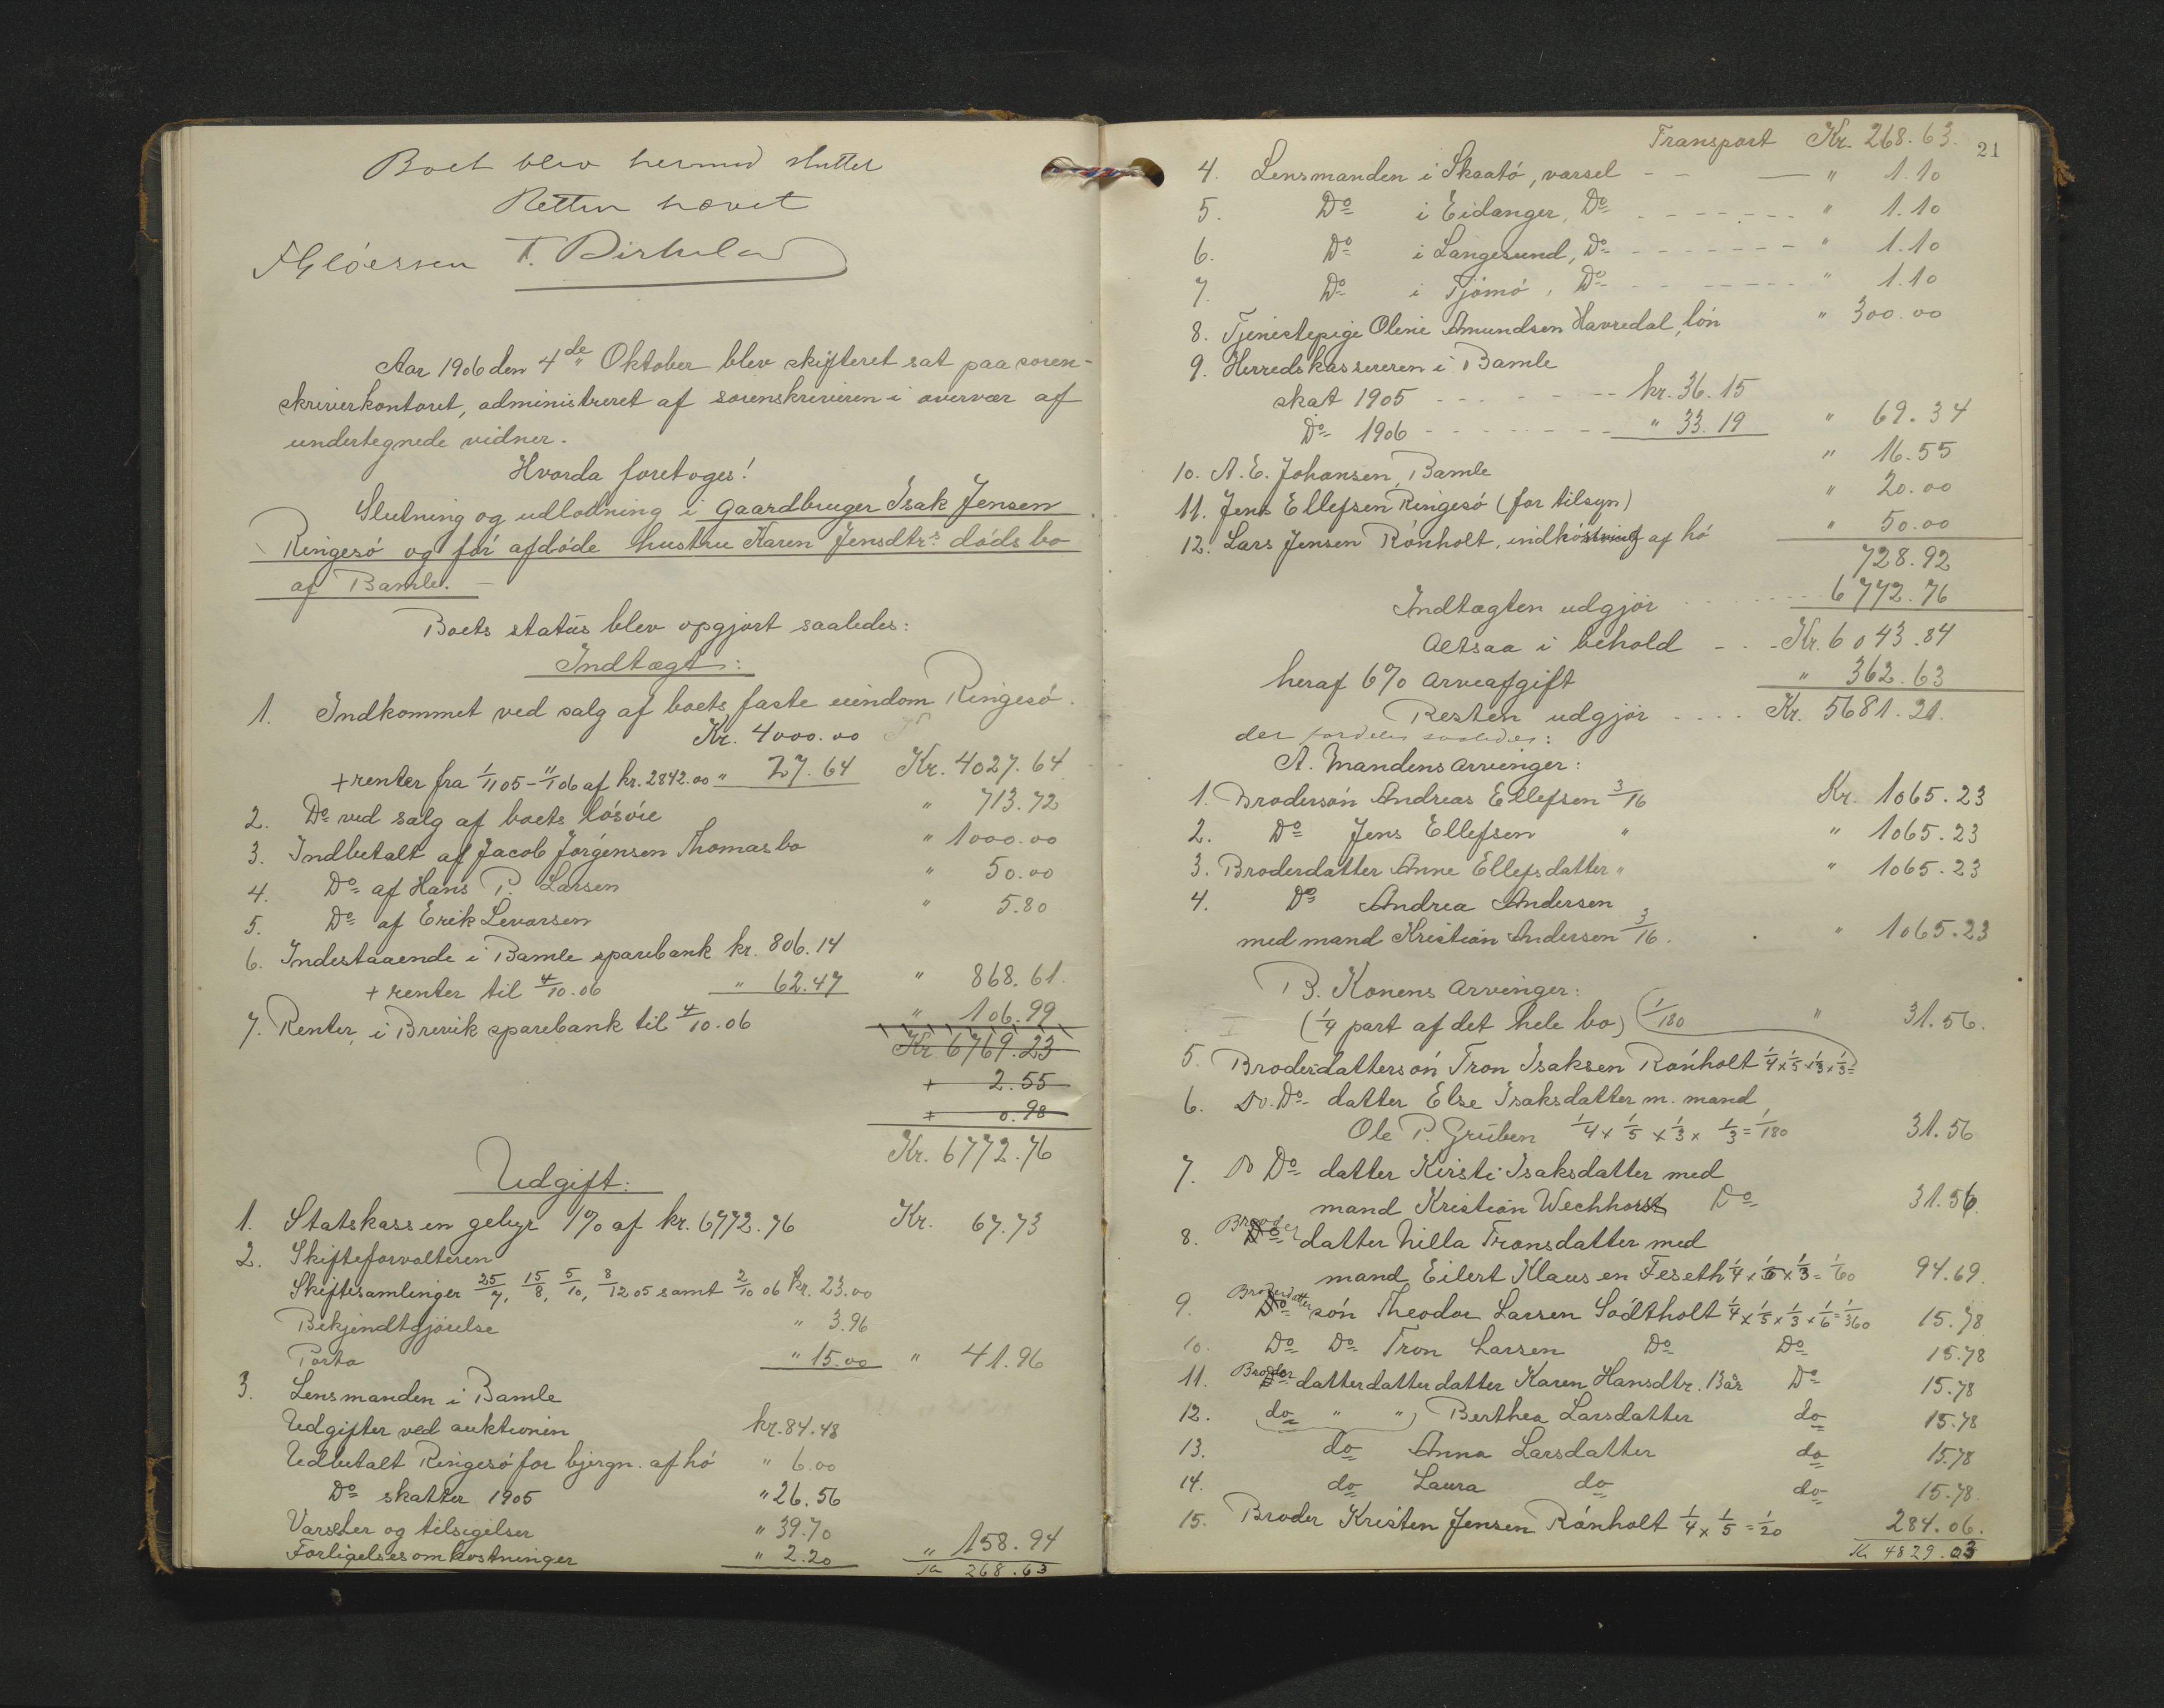 Boet blev hermed sluttet
Retten hævet
FGlöersen T. Birkeland
Aar 1906 den 4de Oktober blev skifteret sat paa soren-
skriverkontoret, administreret af sorenskriveren i overvær af
undertegnede vidner.
Hvorda foretoges!
Slutning og udlodning i Gaardbruger Isak Jensen
Ringesö og för afdöde hustru Karen Jensdtrs dödsbo
af Bamle. -
Boets status blev opgjort saaledes:
Indtægt:
1. Indkommet ved salg af boets faste eiendom Ringesö.
Kr. 4000.00
+ renter fra 1/11 05 - 11/1 06 af kr. 2842.00 " 27.64 Kr. 4027.64
2. Do ved salg af boets lösöre " 713.72
3. Indbetalt af Jacob Jörgensen Thomasbo " 1000.00
4. Do af Hans P. Larsen " 50.00
5. Do af Erik Levorsen " 5.80
6. Indestaaende i Bamle sparebank kr. 806.14
+ renter til 4/10.06 " 62.47 " 868.61.
7. Renter i Brevik sparebank til 4/10.06 " 106.99
Kr. 6769.23
+ 2.55
+ 0.98
Kr. 6772.76
Udgift:
1. Statskassen gebyr 1% af kr. 6772.76 Kr. 67.73
2. Skifteforvalteren
Skiftesamlinger 25/7, 15/8, 5/10, 8/12 05 samt 2/10 06 kr. 23.00
Bekjendtgjörelse " 3.96
Porto " 15.00 " 41.96
3. Lensmanden i Bamle
Udgifter ved auktionen kr. 84.48
Udbetalt Ringesö for bjergn. af hö " 6.00
Do skatter 1905 " 26.56
Varsler og tilsigelser " 39.70
Forligelsesomkostninger " 2.20 " 158.94
Kr 268.63
Transport Kr. 268.63. 21
4. Lensmanden i Skaatö, varsel - - — " 1.10
5. Do i Eidanger, Do - - - - - - - " 1.10
6. Do i Langesund, Do - - - - - - - " 1.10
7. Do i Tjömö, Do - - - - - - - " 1.10
8. Tjenestepige Oline Amundsen Havredal, lön " 300.00
9. Herredskassereren i Bamle
skat 1905 - - - - - - kr. 36.15
Do 1906 - - - - - - - " 33.19 " 69.34
10. A. E. Johansen, Bamle " 16.55
11. Jens Ellefsen Ringesö (for tilsyn) " 20.00
12. Lars Jensen Rönholt, indhöstning af hö " 50.00
728.92
Indtægten udgjör - - - - - 6772.76
Altsaa i behold - - - Kr. 6043.84
heraf 6% arveafgift " 362.63
Resten udgjör - - - - Kr. 5681.21.
der fordeles saaledes:
A. Mandens arvinger:
1. Brodersön Andreas Ellefsen 3/16 Kr. 1065.23
2. Do Jens Ellefsen " " 1065.23
3. Broderdatter Anne Ellefsdatter " " 1065.23
4. Do Andrea Andersen
med mand Kristian Andersen 3/16. " 1065.23
B. Konens arvinger:
(1/4 part af det hele bo) 1/180 " 31.56.
5. Broderdattersön Tron Isaksen Rönholt 1/4 x 1/5 x 1/3 x 1/3 =
6. Do. Do datter Else Isaksdatter m. mand
Ole P. Gruben 1/4 x 1/5 x 1/3 x 1/3 = 1/180 31.56
7. Do Do datter Kirsti Isaksdatter med
mand Kristian Wechhorst Do 31.56.
8. Broder Do datter Nilla Tronsdatter med
mand Eilert Klausen Feseth 1/4 x 1/5 x 1/3 = 1/60 94.69.
9. Broderdatter Do sön Theodor Larsen Södtholt 1/4 x 1/5 x 1/3 x 1/6 = 1/360 15.78
10. Do Do Tron Larsen Do Do 15.78
11. Broder datterdatterdatter Karen Hansdtr. Bår Do 15.78
12. do " " Berthea Larsdatter do 15.78
13. do Anna Larsdatter do 15.78
14. do Laura do do 15.78.
15. Broder Kristen Jensen Rönholt 1/4 x 1/5 = 1/20 284.06.
Kr 4829.03